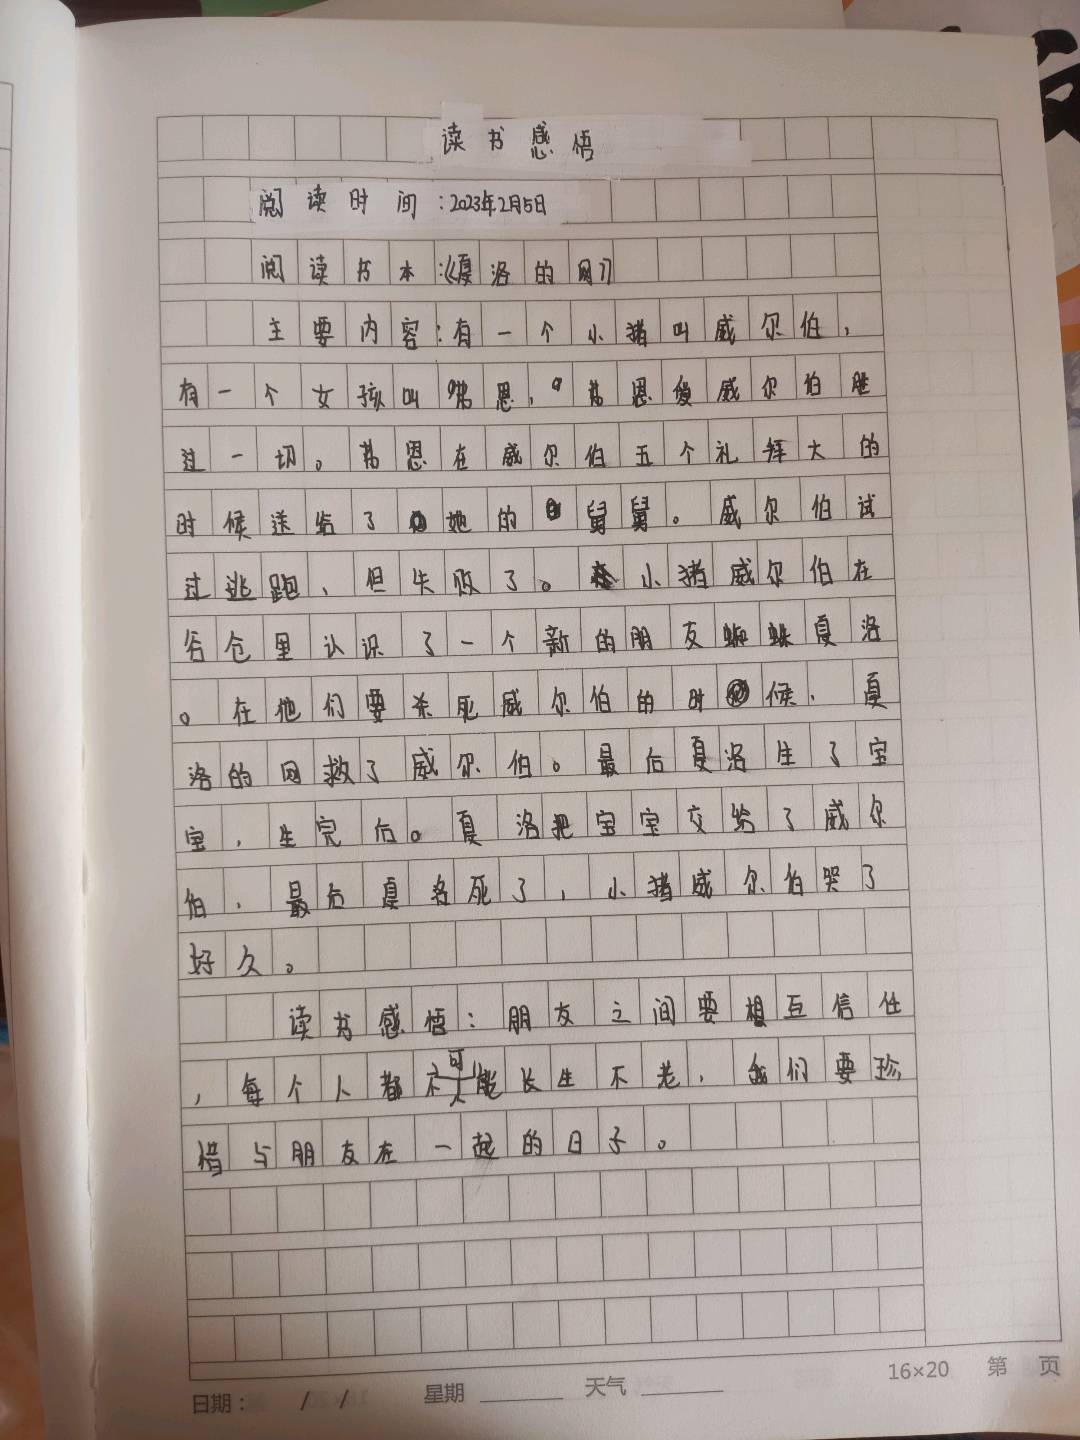 读书感悟
阅读时间：2023年2月5日
阅读书本：《夏洛的网》
主要内容：有一个小猪叫威尔伯，
有一个女孩叫弗恩，弗恩爱威尔伯胜
过一切。弗恩在威尔伯五个礼拜大的
时候送给了她的舅舅。威尔伯试
过逃跑，但失败了。小猪威尔伯在
谷仓里认识了一个新的朋友蜘蛛夏洛
。在他们要杀死威尔伯的时候，夏
洛的网救了威尔伯。最后夏洛生了宝
宝，生完后。夏洛把宝宝交给了威尔
伯，最后夏洛死了，小猪威尔伯哭了
好久。
读书感悟：朋友之间要相互信任
，每个人都不可能长生不老，我们要珍
惜与朋友在一起的日子。
日期： / / 星期 天气 16×20 第 页